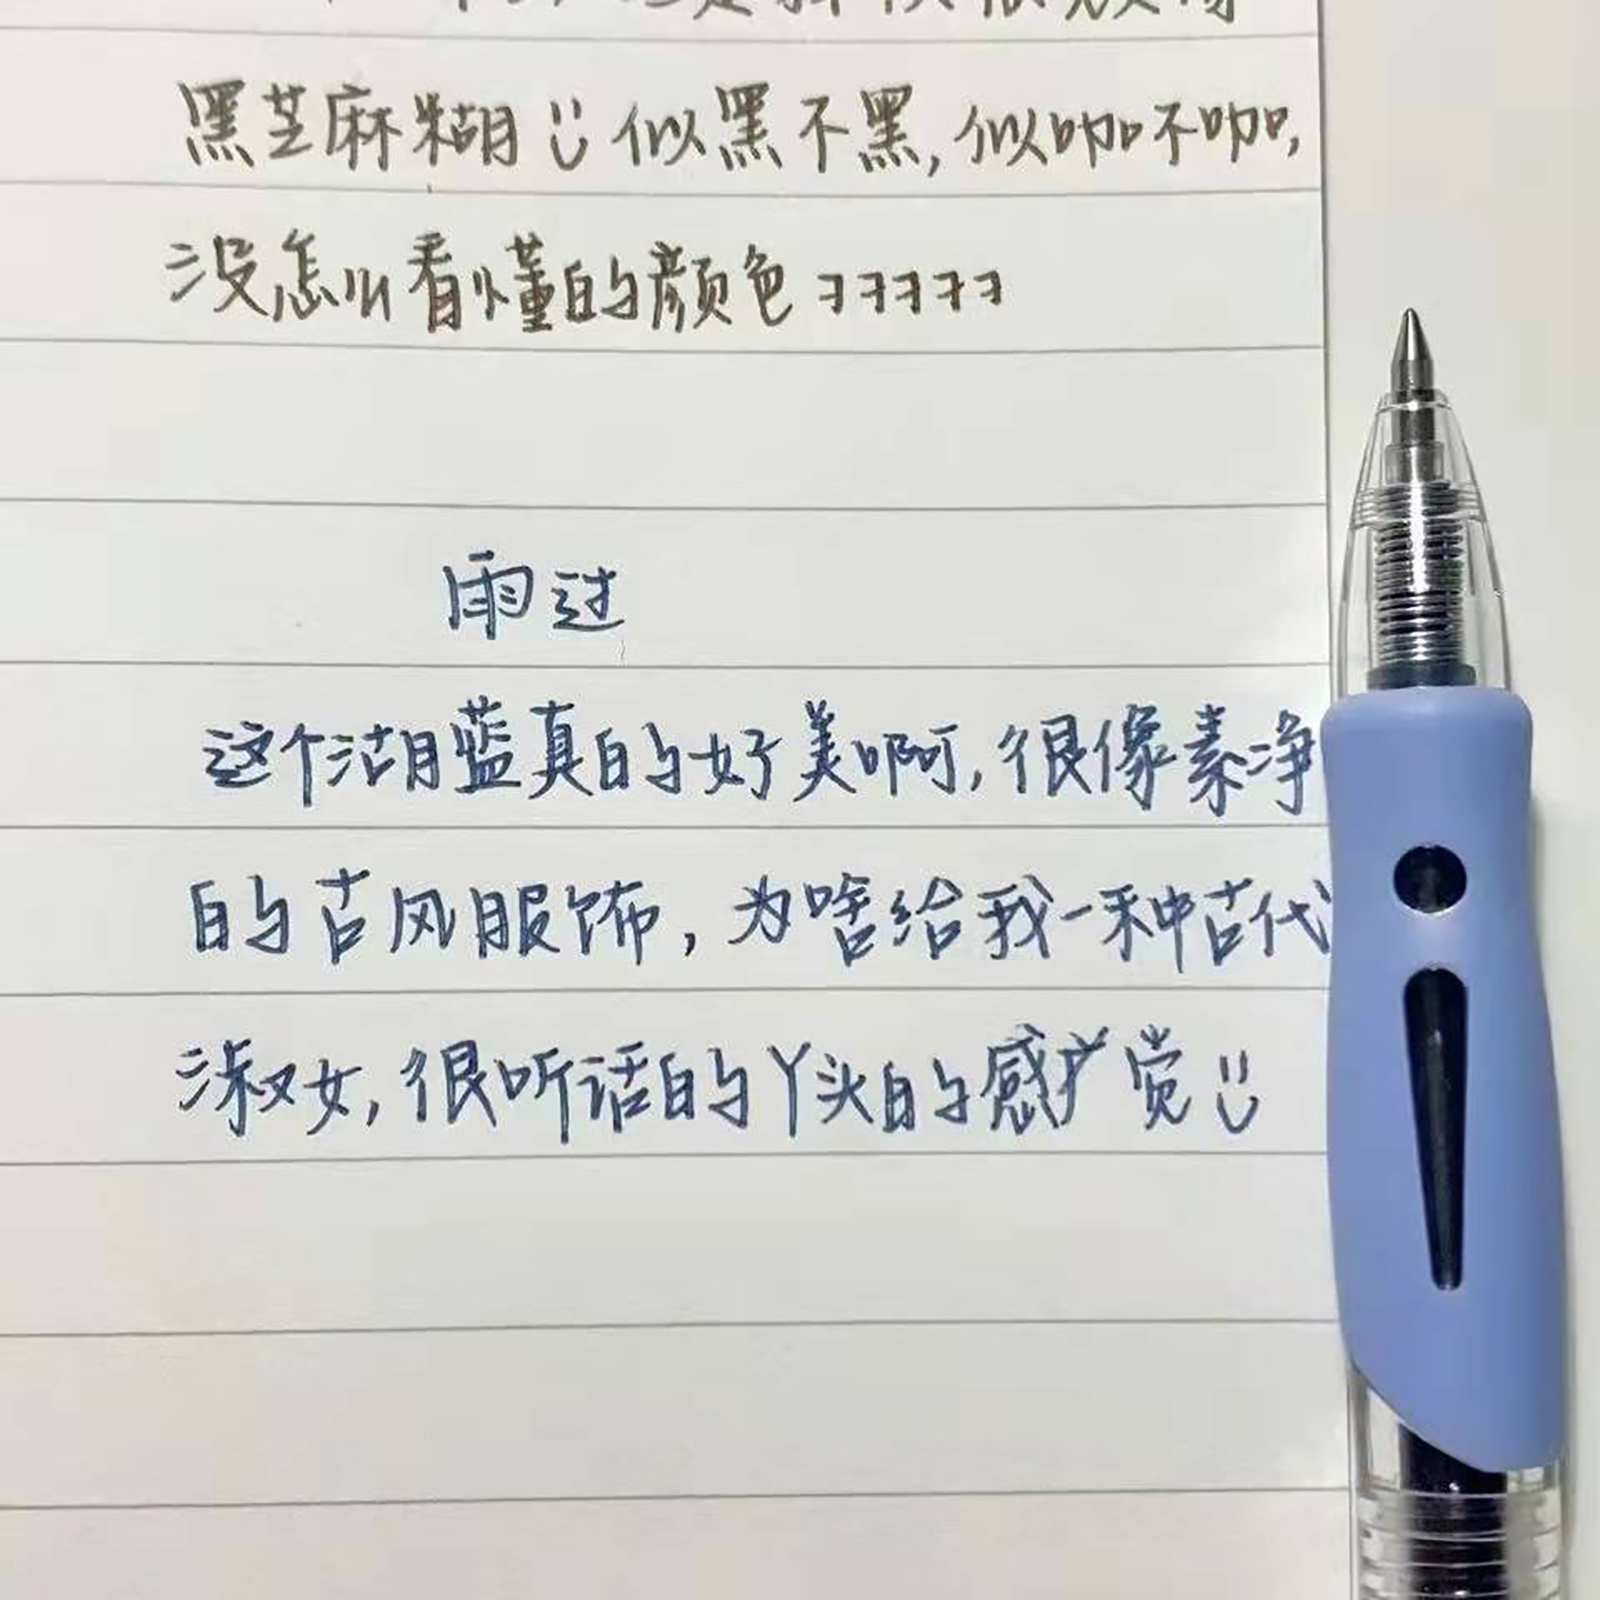 黑芝麻糊 似黑不黑,似咖不咖,
没怎么看懂的颜色ヨヨヨヨヨ
雨过
这个湖蓝真的好美啊,很像素净
的古风服饰,为啥给我一种古代
淑女,很听话的丫头的感觉